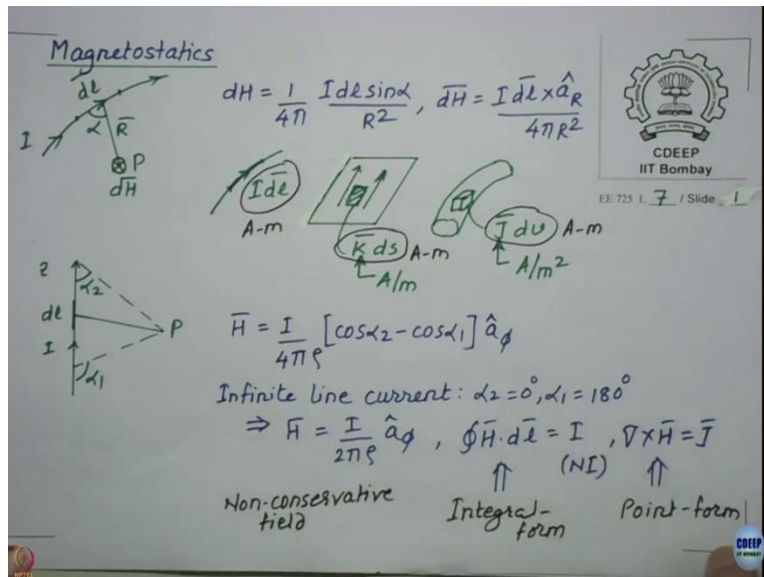 Magnetostatics
dl
I α R̅ P
d̅H̅
dH = 1/4π Idl sinα/R², d̅H̅ = I d̅l̅ × â_R / 4πR²
CDEEP
IIT Bombay
EE 725 L 7 / Slide 1
I d̅l̅
A-m
K̅ ds A-m
A/m
J̅ dv A-m
A/m²
z
α₂
dl
P
I
α₁
H̅ = I/4πρ [cosα₂ - cosα₁] â_φ
Infinite line current: α₂ = 0°, α₁ = 180°
⇒ H̅ = I/2πρ â_φ , ∮H̅·d̅l̅ = I , ∇×H̅ = J̅
(NI)
⇑ ⇑
Non-conservative field
Integral-form
Point-form
NPTEL
CDEEP
IIT BOMBAY